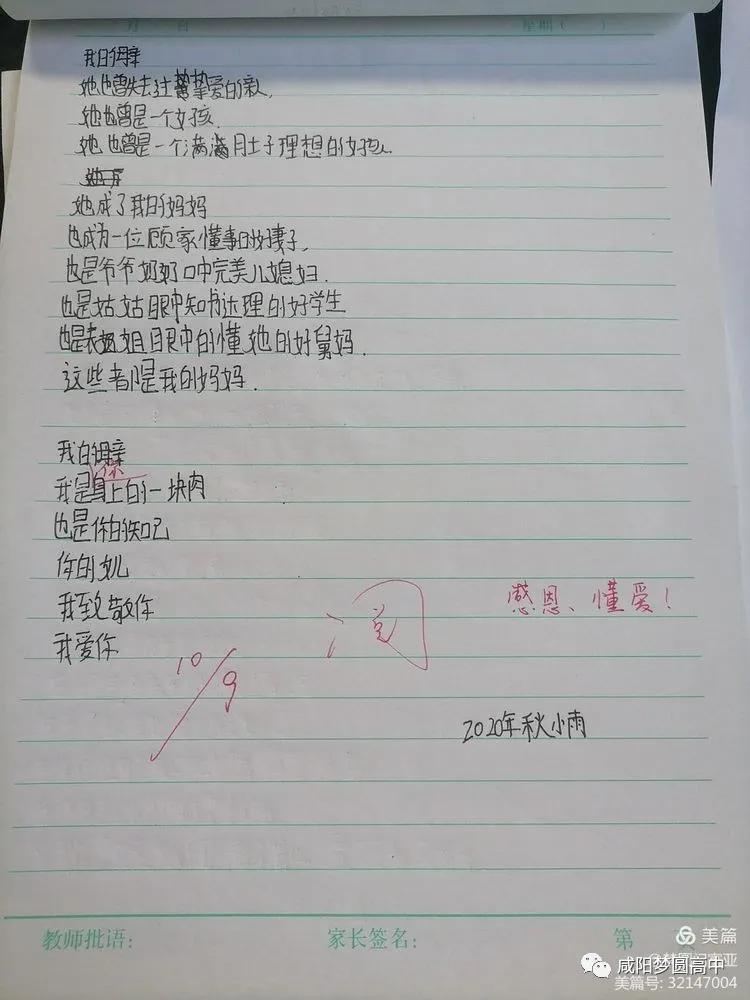 月 日 星期（ ）
我的母亲
她也曾失去过挚爱的亲人,
她也曾是一个女孩.
她也曾是一个满满肚子理想的女孩.
她成了我的妈妈
也成为一位顾家懂事的好妻子,
也是爷爷奶奶口中完美儿媳妇.
也是姑姑眼中知书达理的好学生
也是表姐眼中的懂她的好舅妈.
这些都是我的妈妈.
我的母亲
我是你身上的一块肉
也是你的知己
你的女儿
我致敬你
我爱你
阅
感恩、懂爱!
10/9
2020年秋小雨
教师批语: 家长签名: 第
美篇
咸阳梦圆高中
美篇号: 32147004